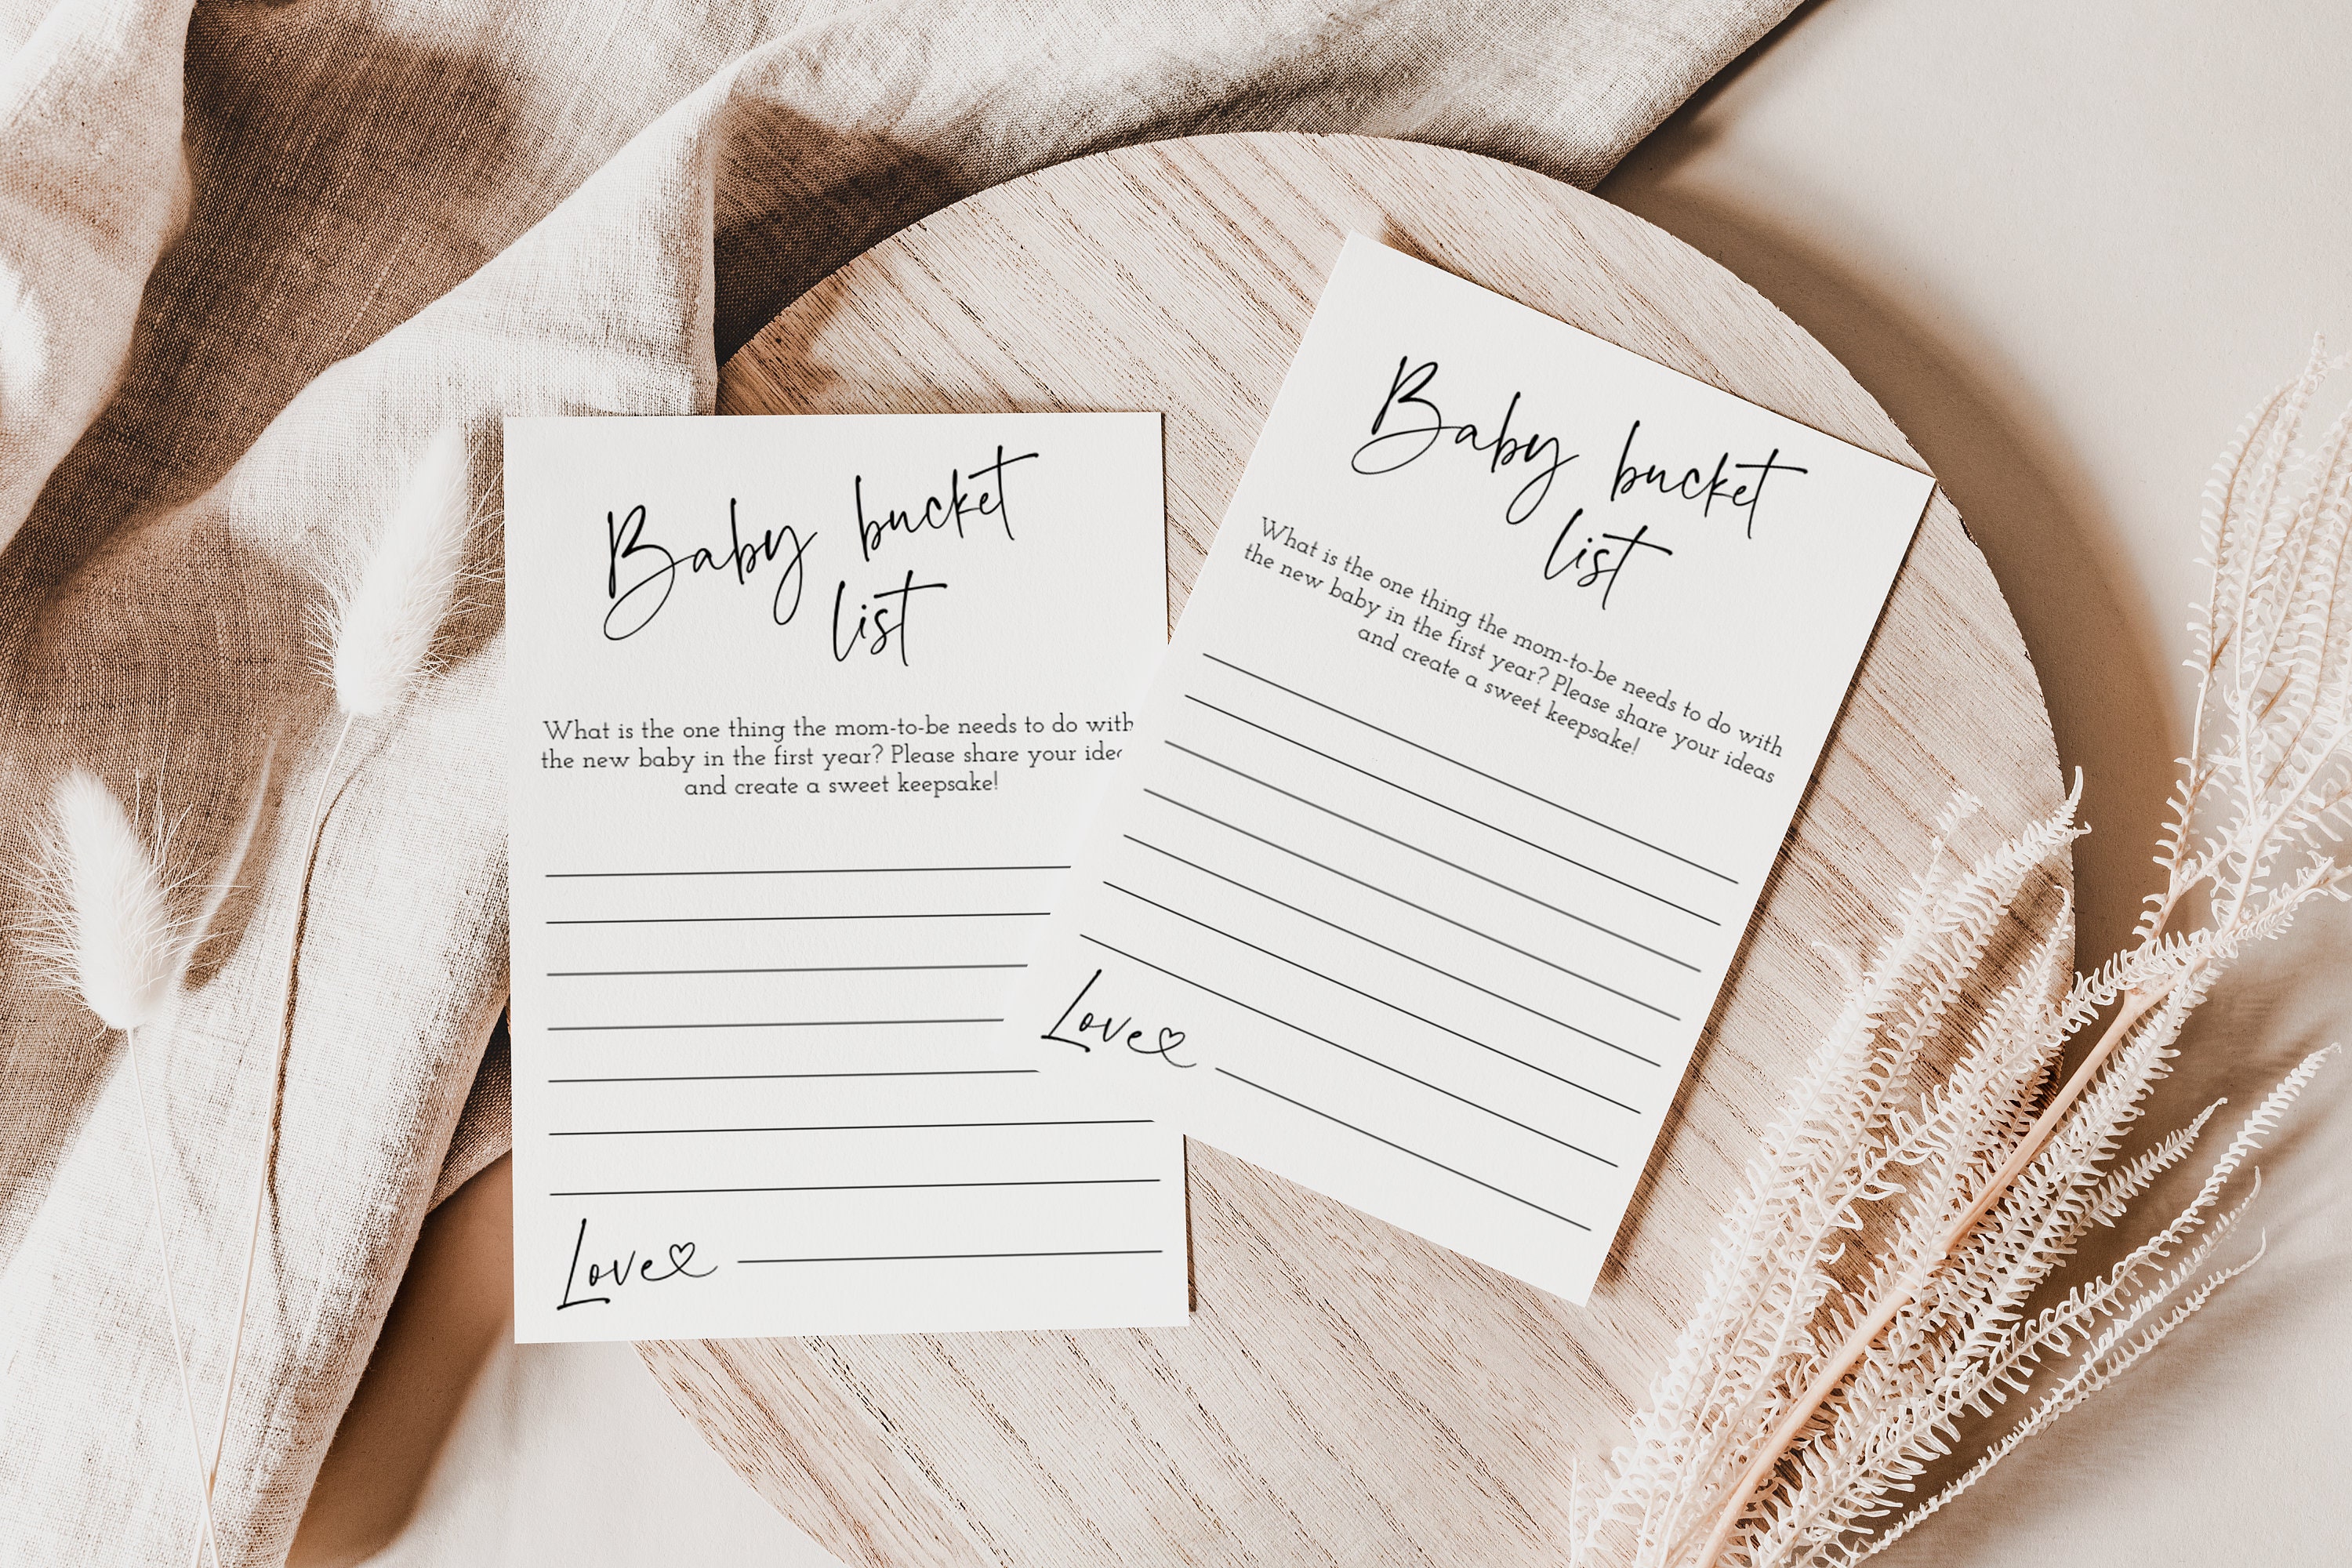 Baby bucket
list
What is the one thing the mom-to-be needs to do with
the new baby in the first year? Please share your
and create a sweet keepsake!
Love
Baby bucket
list
What is the one thing the mom-to-be needs to do with
the new baby in the first year? Please share your ideas
and create a sweet keepsake!
Love